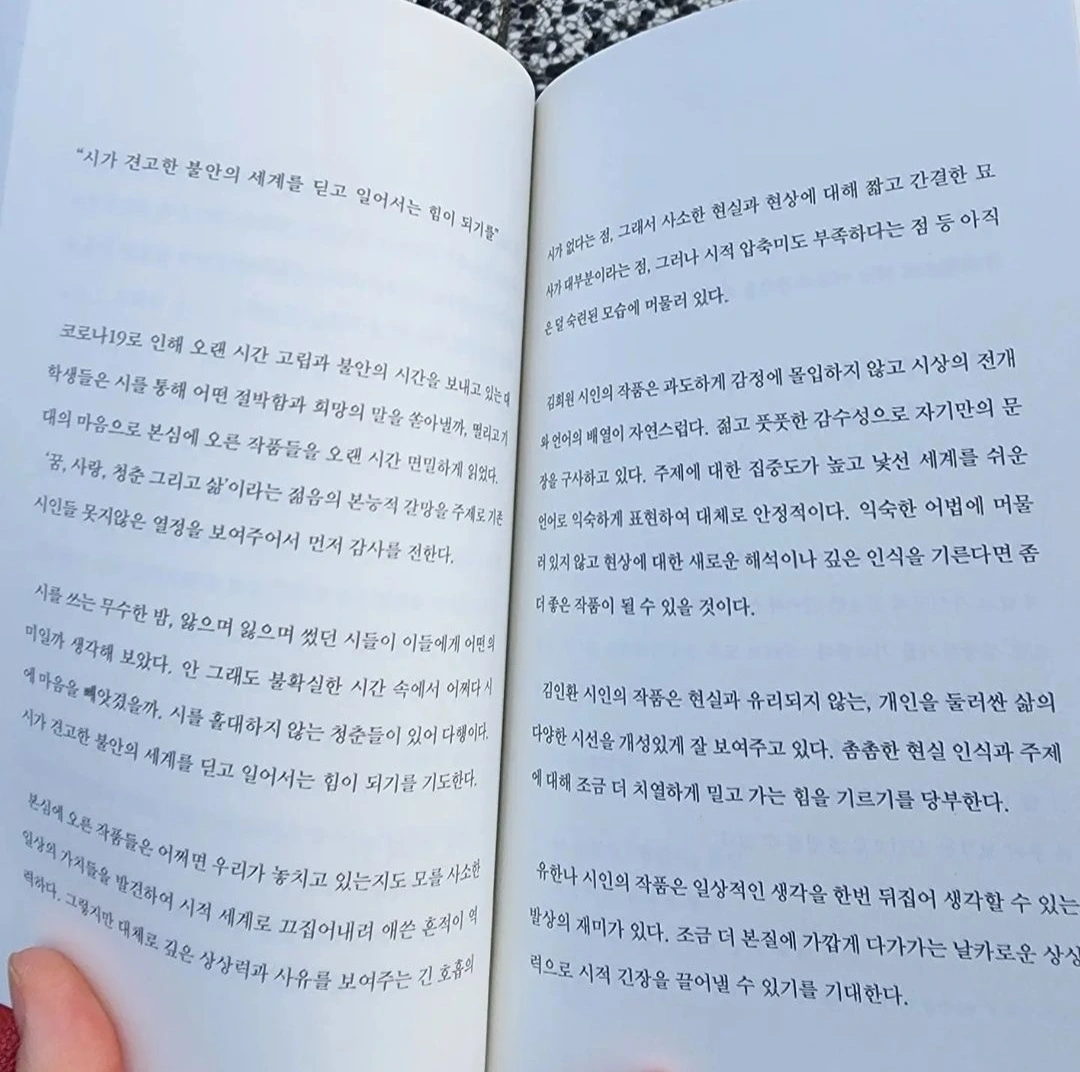 “시가 견고한 불안의 세계를 딛고 일어서는 힘이 되기를”
코로나19로 인해 오랜 시간 고립과 불안의 시간을 보내고 있는 대
학생들은 시를 통해 어떤 절박함과 희망의 말을 쏟아낼까, 떨리고 기
대의 마음으로 본심에 오른 작품들을 오랜 시간 면밀하게 읽었다.
‘꿈, 사랑, 청춘 그리고 삶’이라는 젊음의 본능적 갈망을 주제로 기존
시인들 못지않은 열정을 보여주어서 먼저 감사를 전한다.
시를 쓰는 무수한 밤, 앓으며 잃으며 썼던 시들이 이들에게 어떤 의
미일까 생각해 보았다. 안 그래도 불확실한 시간 속에서 어쩌다 시
에 마음을 빼앗겼을까. 시를 홀대하지 않는 청춘들이 있어 다행이다.
시가 견고한 불안의 세계를 딛고 일어서는 힘이 되기를 기도한다.
본심에 오른 작품들은 어쩌면 우리가 놓치고 있는지도 모를 사소한
일상의 가치들을 발견하여 시적 세계로 끄집어내려 애쓴 흔적이 역
력하다. 그렇지만 대체로 깊은 상상력과 사유를 보여주는 긴 호흡의
시가 없다는 점, 그래서 사소한 현실과 현상에 대해 짧고 간결한 묘
사가 대부분이라는 점, 그러나 시적 압축미도 부족하다는 점 등 아직
은 덜 숙련된 모습에 머물러 있다.
김희원 시인의 작품은 과도하게 감정에 몰입하지 않고 시상의 전개
와 언어의 배열이 자연스럽다. 젊고 풋풋한 감수성으로 자기만의 문
장을 구사하고 있다. 주제에 대한 집중도가 높고 낯선 세계를 쉬운
언어로 익숙하게 표현하여 대체로 안정적이다. 익숙한 어법에 머물
러 있지 않고 현상에 대한 새로운 해석이나 깊은 인식을 기른다면 좀
더 좋은 작품이 될 수 있을 것이다.
김인환 시인의 작품은 현실과 유리되지 않는, 개인을 둘러싼 삶의
다양한 시선을 개성있게 잘 보여주고 있다. 촘촘한 현실 인식과 주제
에 대해 조금 더 치열하게 밀고 가는 힘을 기르기를 당부한다.
유한나 시인의 작품은 일상적인 생각을 한번 뒤집어 생각할 수 있는
발상의 재미가 있다. 조금 더 본질에 가깝게 다가가는 날카로운 상상
력으로 시적 긴장을 끌어낼 수 있기를 기대한다.